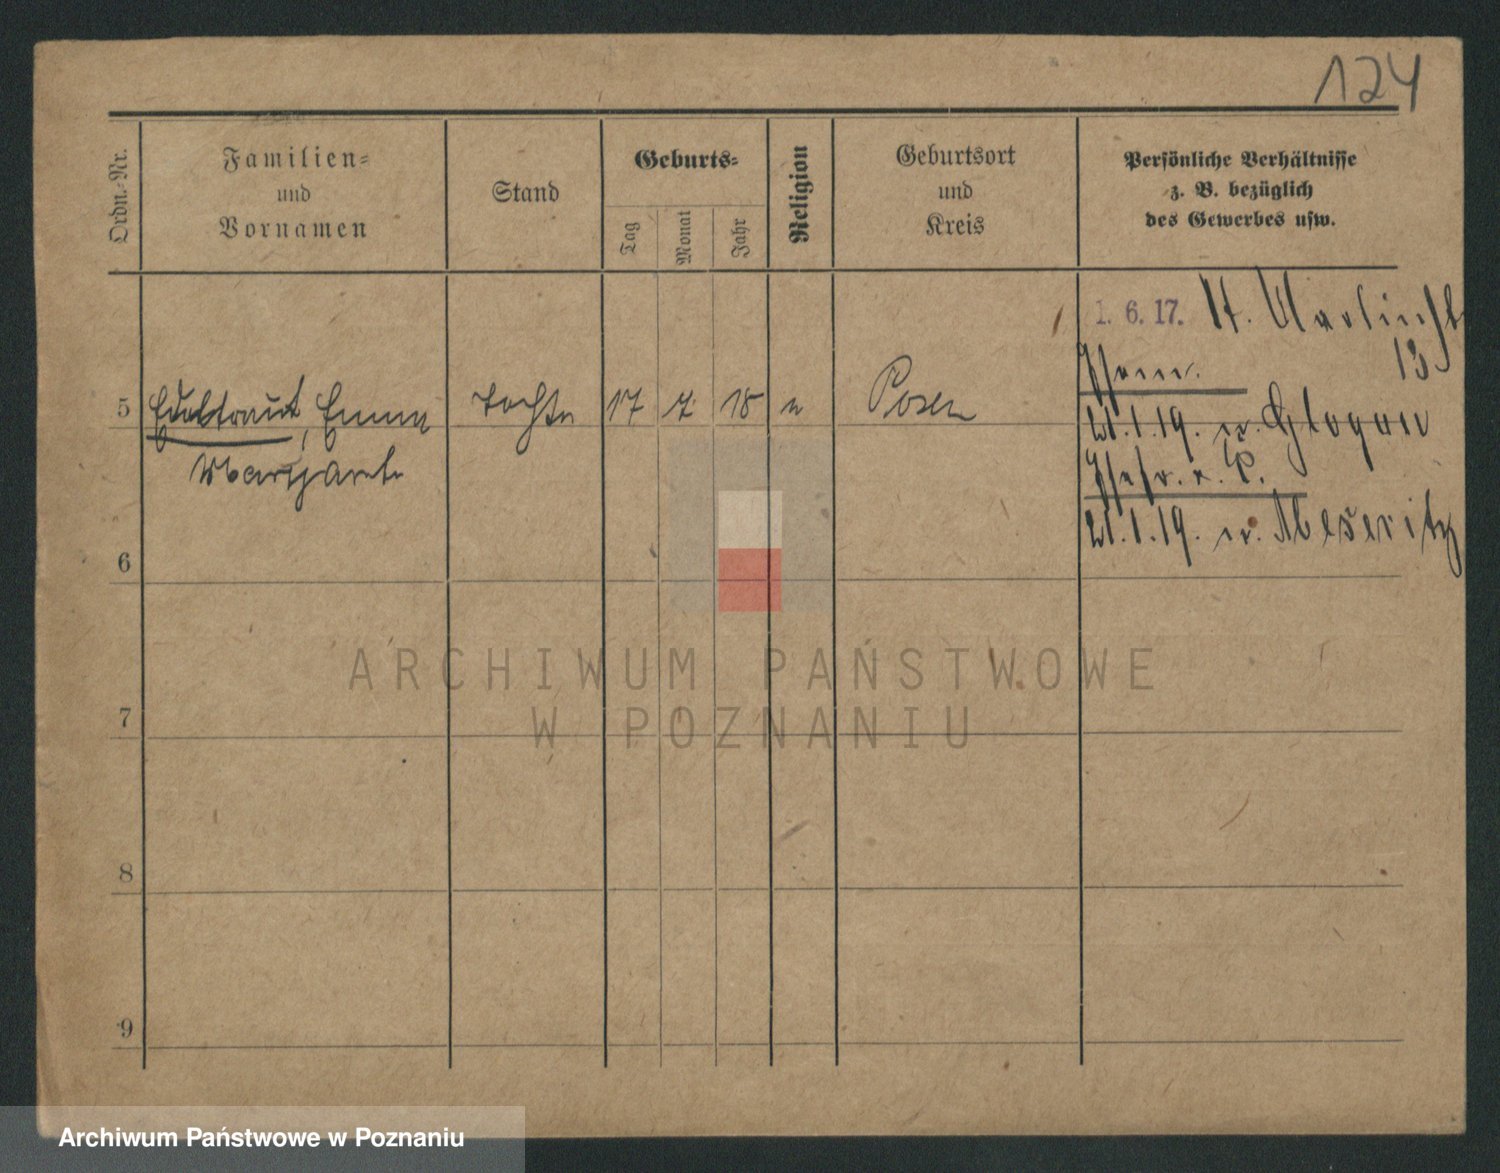 124
Ordn.-Nr.
Familien-
und
Vornamen
Stand
Geburts-
Tag
Monat
Jahr
Religion
Geburtsort
und
Kreis
Persönliche Verhältnisse
z. B. bezüglich
des Gewerbes usw.
1. 6. 17.
13
5 Edeltraut, Emma
Margarete
Tochter
17
7
18
Posen
21.1.19. Glogau
21.1.19. Meseritz
6
7
8
9
ARCHIWUM PAŃSTWOWE
W POZNANIU
Archiwum Państwowe w Poznaniu